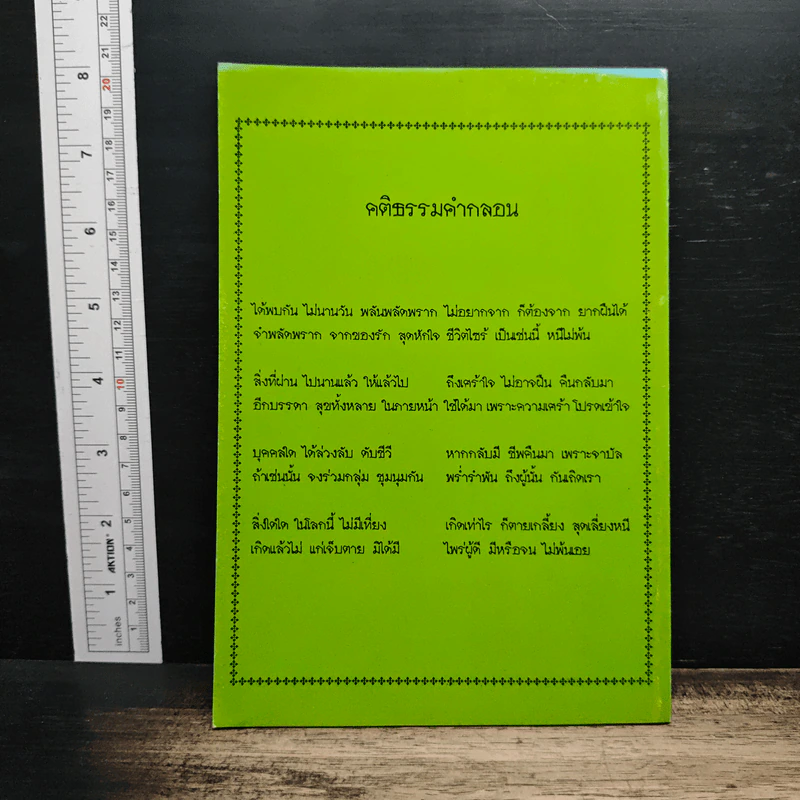 คติธรรมคำกลอน
ได้พบกัน ไม่นานวัน พลันพลัดพราก ไม่อยากจาก ก็ต้องจาก ยากฝืนได้
จำพลัดพราก จากของรัก สุดหักใจ ชีวิตไซร้ เป็นเช่นนี้ หนีไม่พ้น
สิ่งที่ผ่าน ไปนานแล้ว ให้แล้วไป ถึงเศร้าใจ ไม่อาจฝืน คืนกลับมา
อีกบรรดา สุขทั้งหลาย ในภายหน้า ใช่ได้มา เพราะความเศร้า โปรดเข้าใจ
บุคคลใด ได้ล่วงลับ ดับชีวี หากกลับมี ชีพคืนมา เพราะจาบัล
ถ้าเช่นนั้น จงร่วมกลุ่ม ชุมนุมกัน พร่ำรำพัน ถึงผู้นั้น กันเถิดเรา
สิ่งใดใด ในโลกนี้ ไม่มีเที่ยง เกิดเท่าไร ก็ตายเกลี้ยง สุดเลี่ยงหนี
เกิดแล้วไม่ แก่เจ็บตาย มิได้มี ไพร่ผู้ดี มีหรือจน ไม่พ้นเอย
22
8
20
19
18
7
17
16
15
6
14
13
5
12
11
4
10
9
8
3
7
6
2
5
4
AKTION®
3
1
2
1
inches